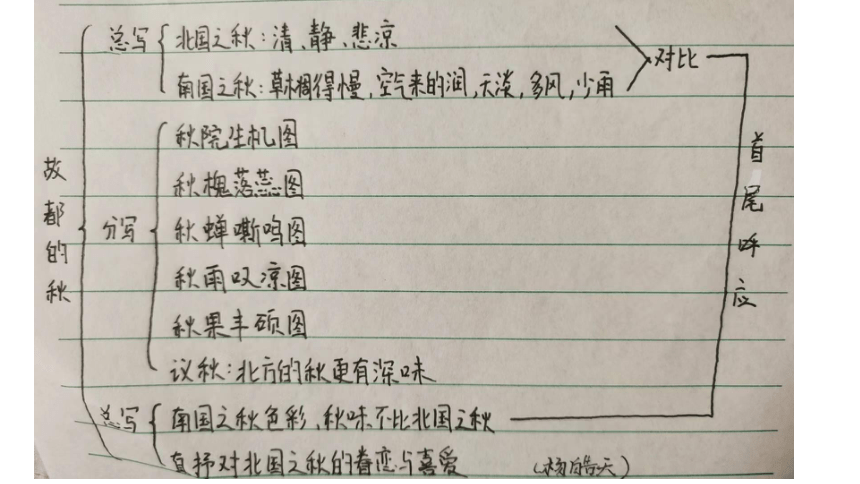 故都的秋
总写
北国之秋：清、静、悲凉
南国之秋：草木凋得慢，空气来的润，天淡，多风，少雨
对比
首尾呼应
分写
秋院生机图
秋槐落蕊图
秋蝉嘶鸣图
秋雨叹凉图
秋果丰硕图
议秋：北方的秋更有深味
总写
南国之秋色彩，秋味不比北国之秋
直抒对北国之秋的眷恋与喜爱
（杨皓天）